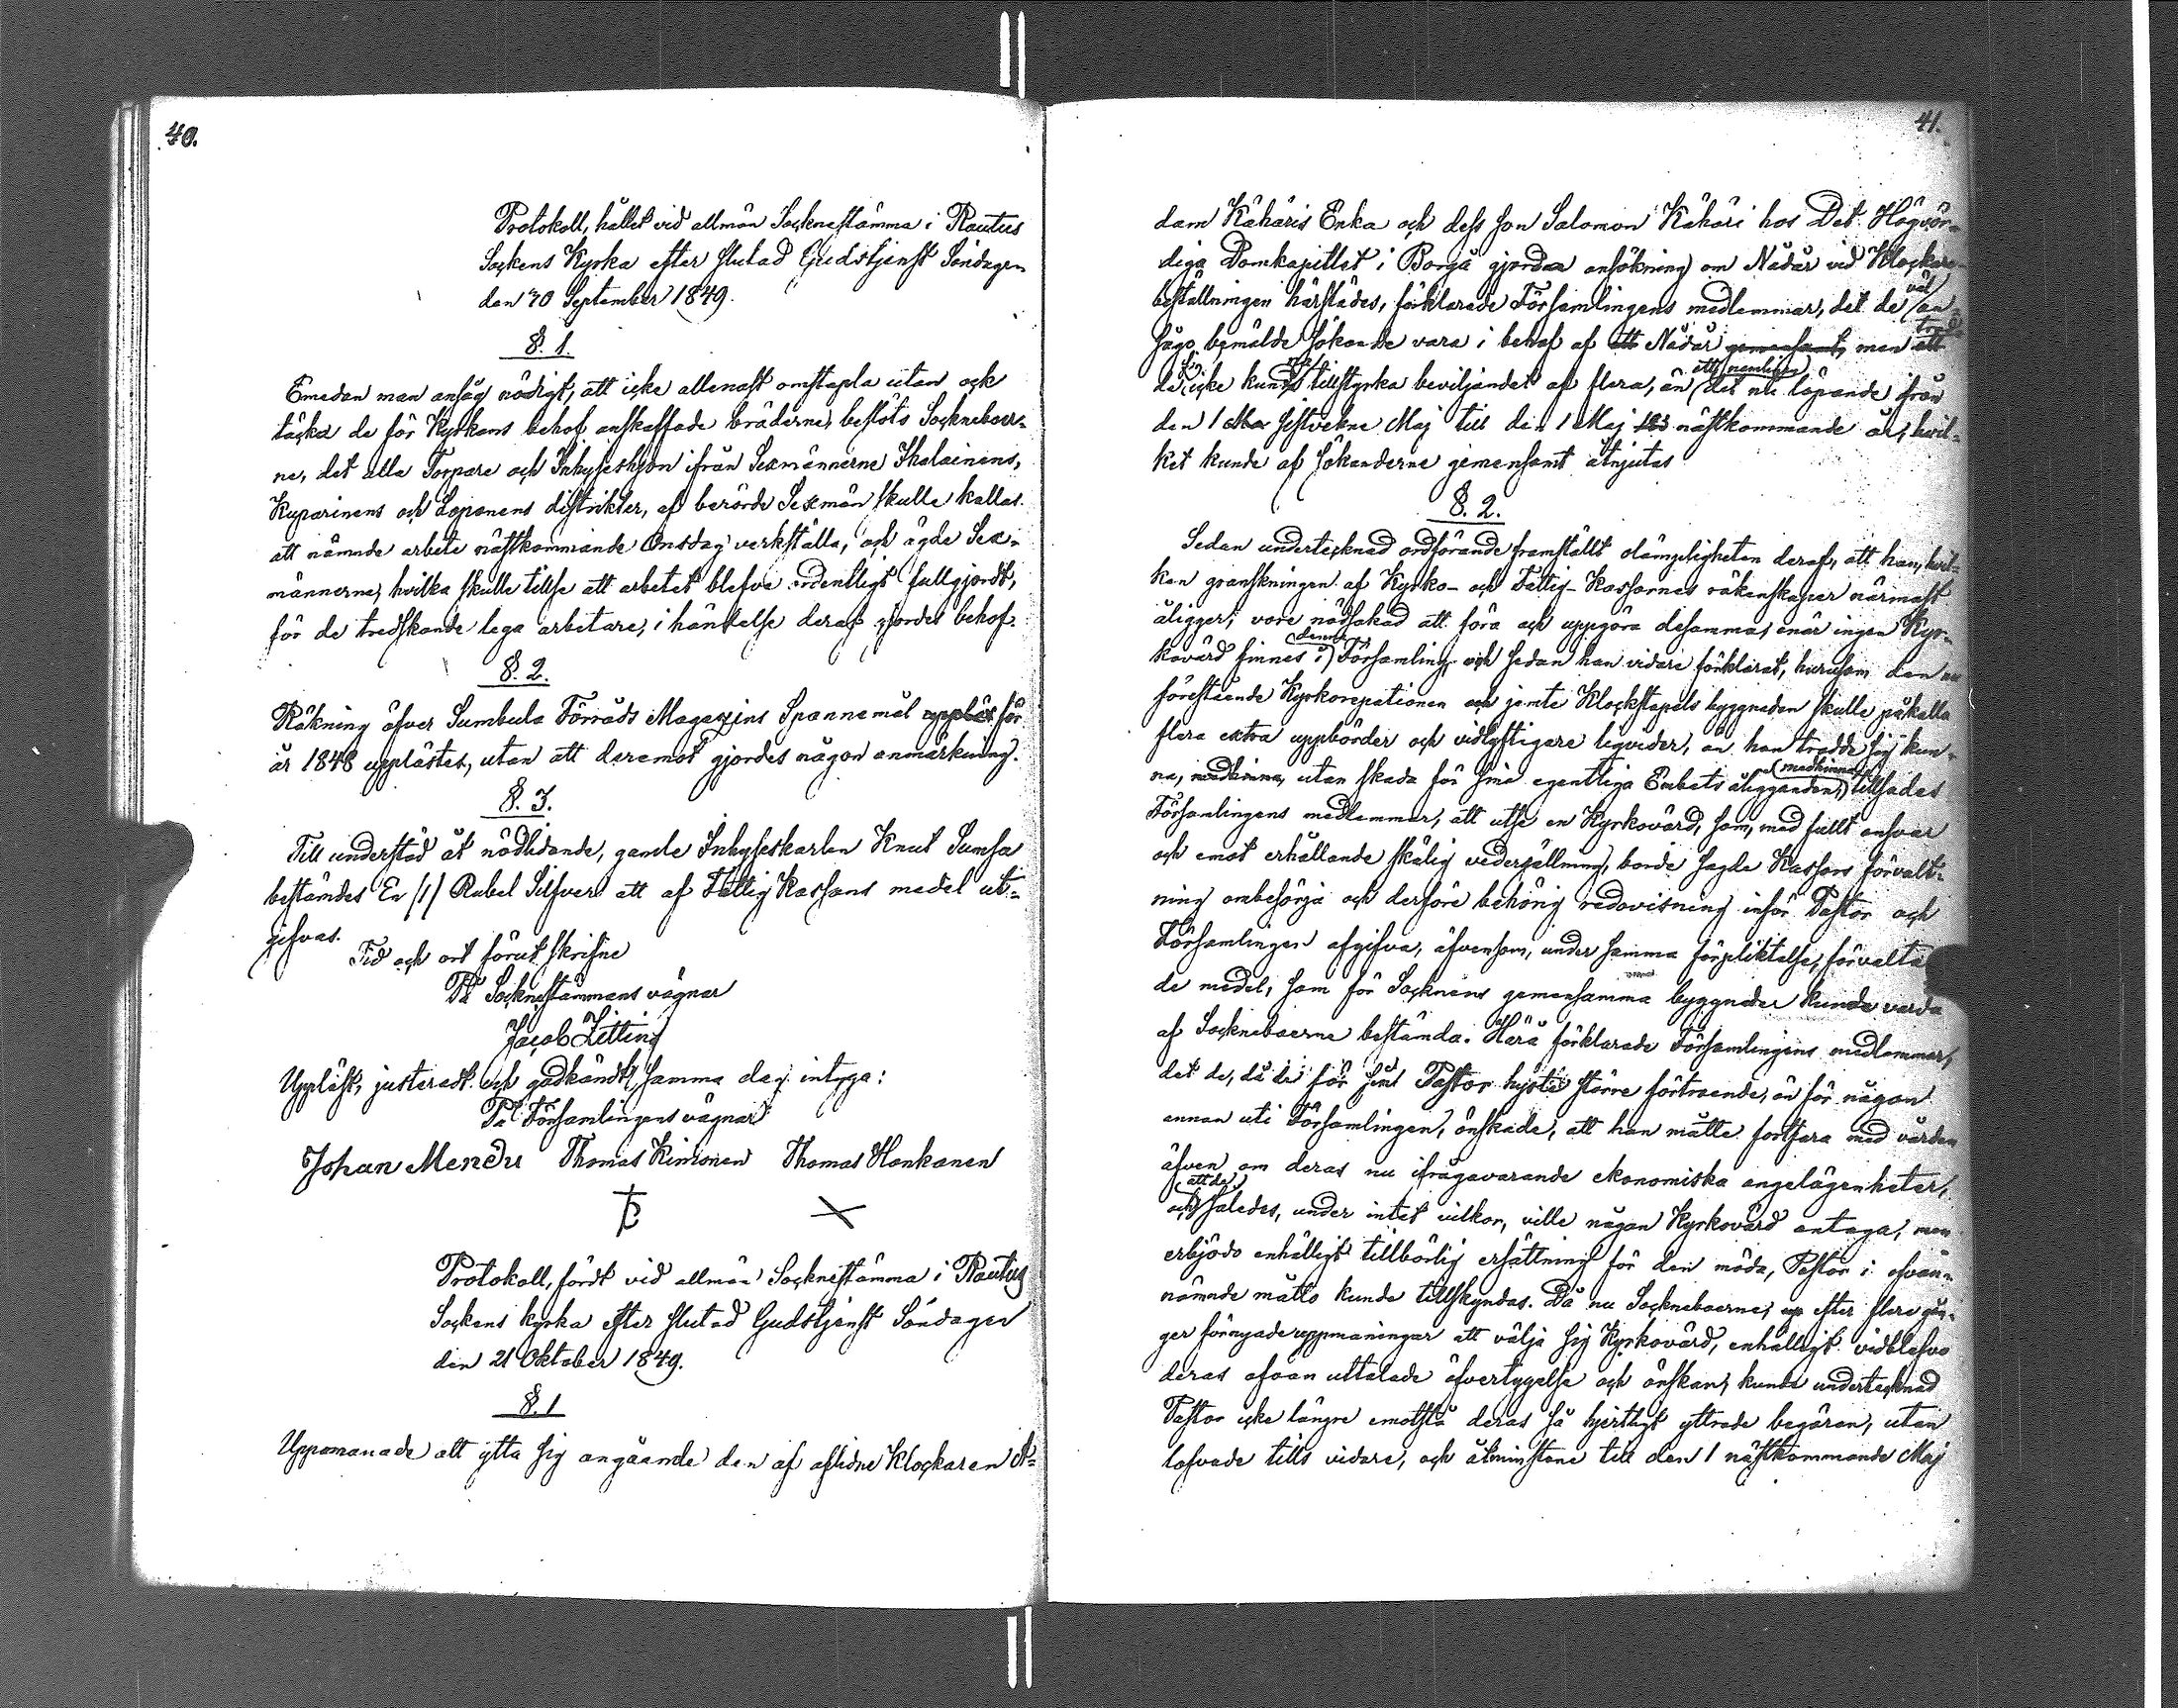 40.
Protokoll, hållet vid allmän Sockнestämma i Rautus
Sockens Kyrka efter slutad Gudstjenst Söndagen
den 30 September 1849.
§. 1.
Emedan man ansåg nödigt, att icke allenast omstapla utan ock
täcka de för Kyrkans behof anskaffade bräderne, beslöts Sockneboer-
ne, det alla Torpare och Inhyseshjon ifrån Sexmännerne Ikalainens,
Kuparinens och Loponens distrikter, af berörde Sexmän skulle kallas
att nämnde arbete nästkommande Onsdag verkställa, och ägde Sex-
männerne, hvilka skulle tillse att arbetet blefve ordentligt fullgjordt,
för de tredskande lega arbetare, i händelse deraf gjordes behof.
§. 2.
Räkning öfver Sumbula Förråds Magazins Spannemål för
år 1848 upplästes, utan att deremot gjordes någon anmärkning.
§. 3.
Till understöd åt nödlidande, gamle Inhyseskarlen Knut Sumsa
bestämdes En (1) Rubel Silfver att af Fattig Kassans medel ut-
gifvas.
Tid och ort förut skrifne
På Sockнestämmans vägnar
Jacob Zitting
Uppläst, justeradt och godkändt samma dag intyga:
På Församlingens vägnar
Johan Mendu Thomas Kinnonen Thomas Hankanen
Protokoll, fördt vid allmän Sockнestämma i Rautus
Sockens kyrka efter slutad Gudstjenst Söndagen
den 21 Oktober 1849.
§. 1
Uppmanade att ytta sig angående den af aflidne Klockaren A-
41.
dam Kähäris Enka och dess son Salomon Kähäri hos Det Högvör-
diga Domkapitlet i Borgå gjorda ansökning om Nådår vid Klockare-
val
beställningen härstädes, förklarade Församlingens medlemmar, det de an-
sågo bemälde sökande vara i behof af Nådår gemensamt, men att
ett nemligen
de icke kunde tillstyrka beviljandet af flera, än det nu löpande ifrån
den 1 sistvekne Maj till den 1 Maj nästkommande år, hvil-
ket kunde af sökanderne gemensamt åtnjutas
§. 2.
Sedan undertecknad ordförande framställt olämpligheten deraf, att han, hvil-
ken granskningen af Kyrko- och Fattig-Kassornes räkenskaper närmast
åligger, vore nödsakad att föra och uppgöra desamma, enär ingen Kyr-
denna
kovärd finnes i Församling, och sedan han vidare förklarat, hurusom den nu
förestående Kyrkorepationen och jemte Klockstapels byggnaden skulle påkalla
flera extra uppbörder och vidlyftigare liqvider, än han trodde sig kun-
medhinna
na, medhinna, utan skada för sine egentliga Embets åligganden, tillsades
Församlingens medlemmar, att utse en Kyrkovärd, som, med fullt ansvar
och emot erhållande skälig vedergällning, borde sagde Kassors förvalt-
ning ombesörja och derföre behörig redovisning inför Pastor och
Församlingen afgifva, äfvensom, under samma förpliktelse, förvalta
de medel, som för Socknens gemensamma byggnader kunde varda
af Sockneboerne bestämda. Härå förklarade Församlingens medlemmar,
det de, då de för sint Pastor hyste större förtroende, än för någon
annan uti Församlingen, önskade, att han måtte fortfara med vården
äfven om deras nu ifrågavarande ekonomiska angelägenheter,
att de
och således, under intet vilkor, ville någon Kyrkovärd antaga, men
erbjödo enhälligt tillbörlig ersättning för den möda, Pastor i ofvan-
nämnde måtto kunde tillskyndas. Då nu Sockneboerne, efter flere gån-
ger förnyade uppmaningar att välja sig Kyrkovärd, enhälligt vidblefvo
deras ofvan uttalade öfvertygelse och önskan, kunde undertecknad
Pastor icke längre emotstå deras så hjertligt yttrade begäran, utan
lofvade tills vidare, och åtminstone till den 1 nästkommande Maj